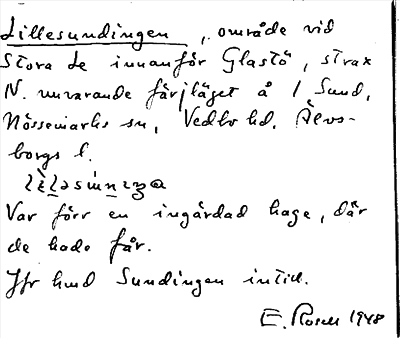 Lillesundingen, område vid
Stora Le innanför Glastö, strax
N. nuvarande färjläget å / Sund,
Nössemarks sn, Vedbo hd, Älvs-
borgs l.
Var förr en ingärdad hage, där
de hade får.
Jfr hmd Sundingen intill.
E. Rosell 1948